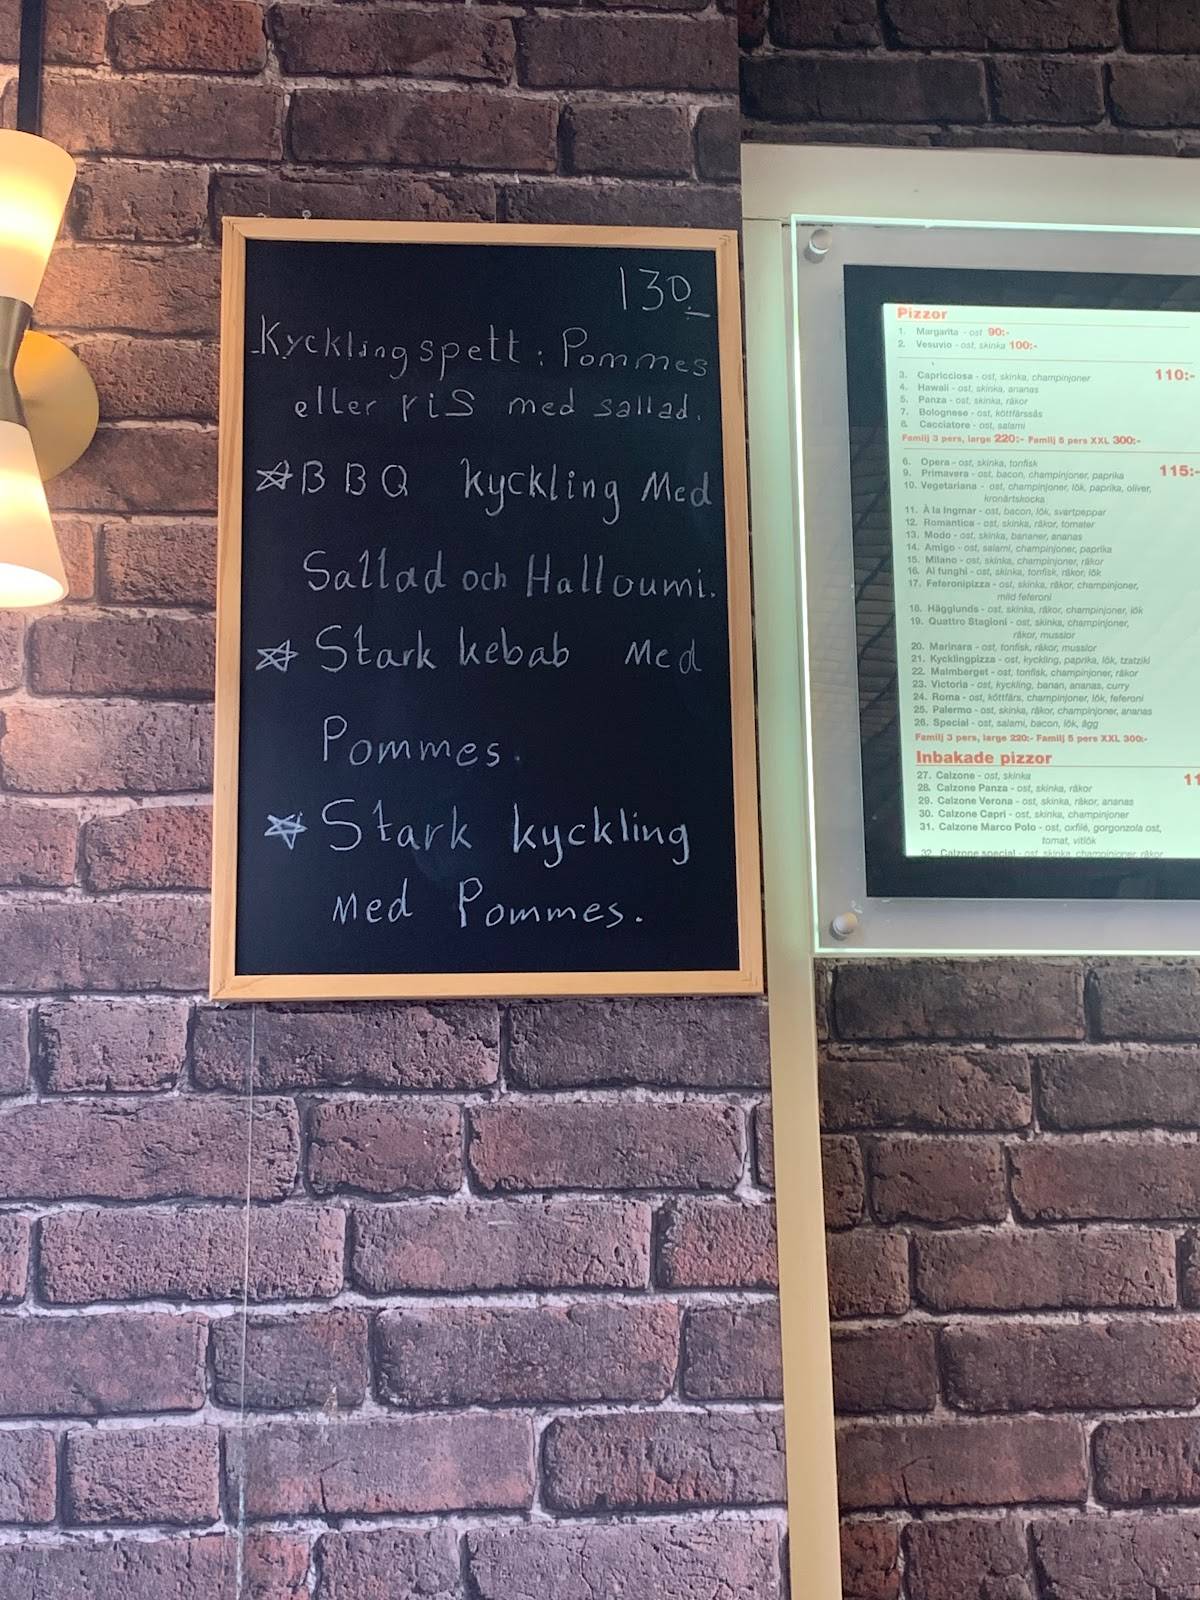 130.
Kycklingspett : Pommes
eller ris med sallad.
BBQ kyckling Med
Sallad och Halloumi.
Stark kebab Med
Pommes.
Stark kyckling
Med Pommes.
Pizzor
1. Margarita - ost 90:-
2. Vesuvio - ost, skinka 100:-
3. Capricciosa - ost, skinka, champinjoner 110:-
4. Hawaii - ost, skinka, ananas
5. Panza - ost, skinka, räkor
7. Bolognese - ost, köttfärssås
8. Cacciatore - ost, salami
Familj 3 pers, large 220:- Familj 5 pers XXL 300:-
6. Opera - ost, skinka, tonfisk
9. Primavera - ost, bacon, champinjoner, paprika 115:-
10. Vegetariana - ost, champinjoner, lök, paprika, oliver,
kronärtskocka
11. À la Ingmar - ost, bacon, lök, svartpeppar
12. Romantica - ost, skinka, räkor, tomater
13. Modo - ost, skinka, bananer, ananas
14. Amigo - ost, salami, champinjoner, paprika
15. Milano - ost, skinka, champinjoner, räkor
16. Al funghi - ost, skinka, tonfisk, räkor, lök
17. Feferonipizza - ost, skinka, räkor, champinjoner,
mild feferoni
18. Hägglunds - ost, skinka, räkor, champinjoner, lök
19. Quattro Stagioni - ost, skinka, champinjoner,
räkor, musslor
20. Marinara - ost, tonfisk, räkor, musslor
21. Kycklingpizza - ost, kyckling, paprika, lök, tzatziki
22. Malmberget - ost, tonfisk, champinjoner, räkor
23. Victoria - ost, kyckling, banan, ananas, curry
24. Roma - ost, köttfärs, champinjoner, lök, feferoni
25. Palermo - ost, skinka, räkor, champinjoner, ananas
26. Special - ost, salami, bacon, lök, ägg
Familj 3 pers, large 220:- Familj 5 pers XXL 300:-
Inbakade pizzor
27. Calzone - ost, skinka 11
28. Calzone Panza - ost, skinka, räkor
29. Calzone Verona - ost, skinka, räkor, ananas
30. Calzone Capri - ost, skinka, champinjoner
31. Calzone Marco Polo - ost, oxfilé, gorgonzola ost,
tomat, vitlök
32. Calzone special - ost, skinka, champinjoner, räkor